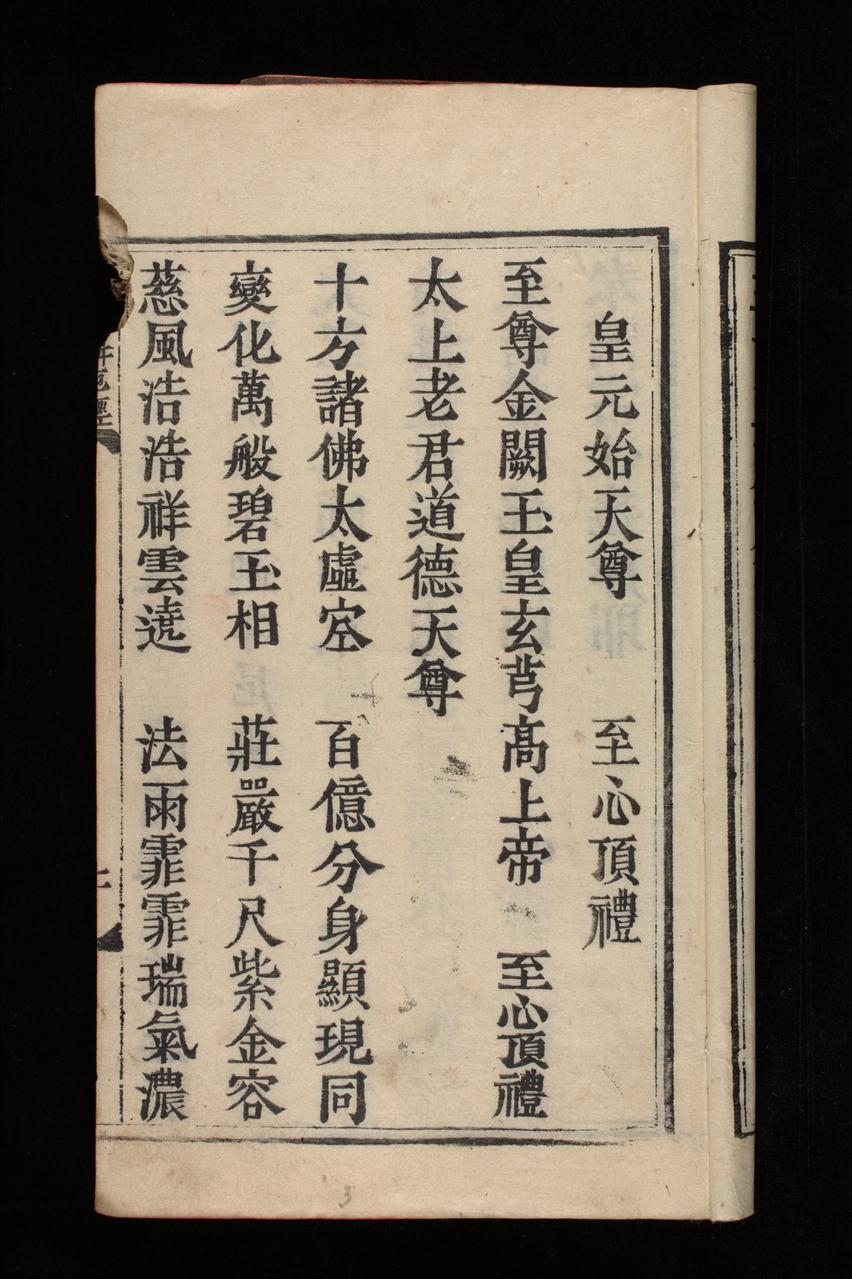 皇元始天尊　至心頂禮
至尊金闕玉皇玄芎髙上帝　至心頂禮
太上老君道德天尊
十方諸佛太虛空　百億分身顯現同
變化萬般碧玉相　莊嚴千尺紫金容
慈風浩浩祥雲遶　法雨霏霏瑞氣濃
經
3